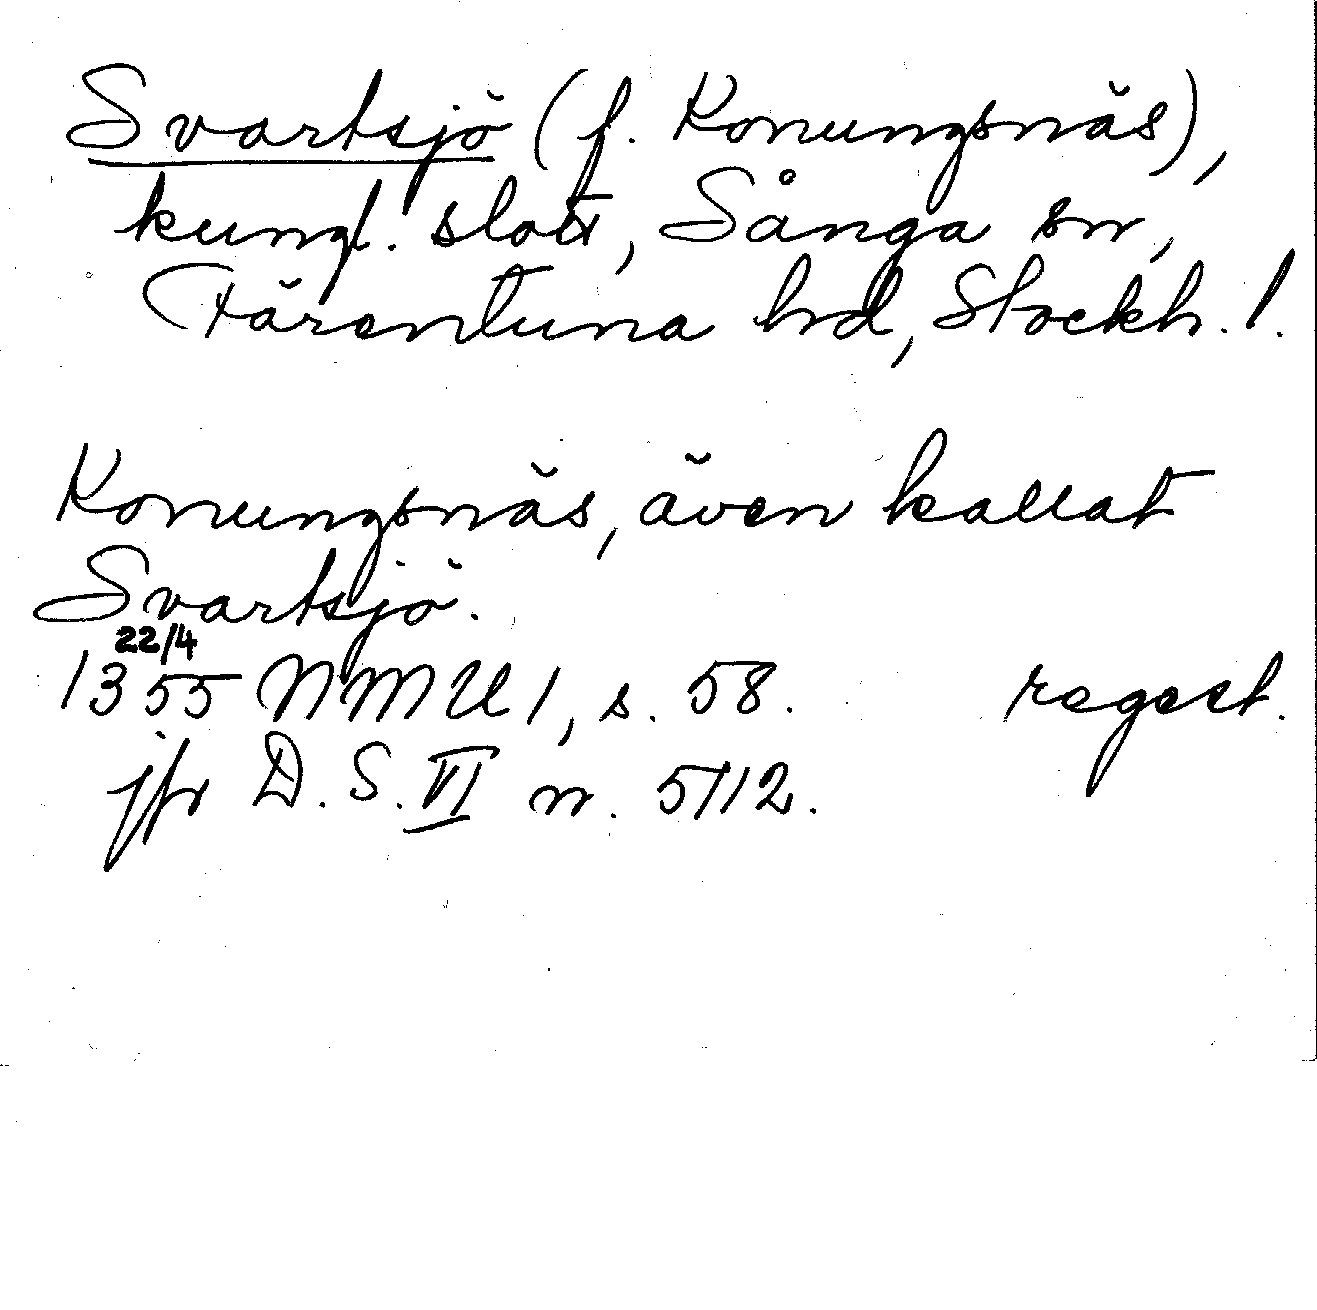 Svartsjö (f. Konungsnäs),
kungl. slott, Sånga sn,
Färentuna hd, Stockh. l.
Konungsnäs, även kallat
Svartsjö.
22/4
1355 NMU 1, s. 58. regest.
jfr D. S. VI nr. 5112.